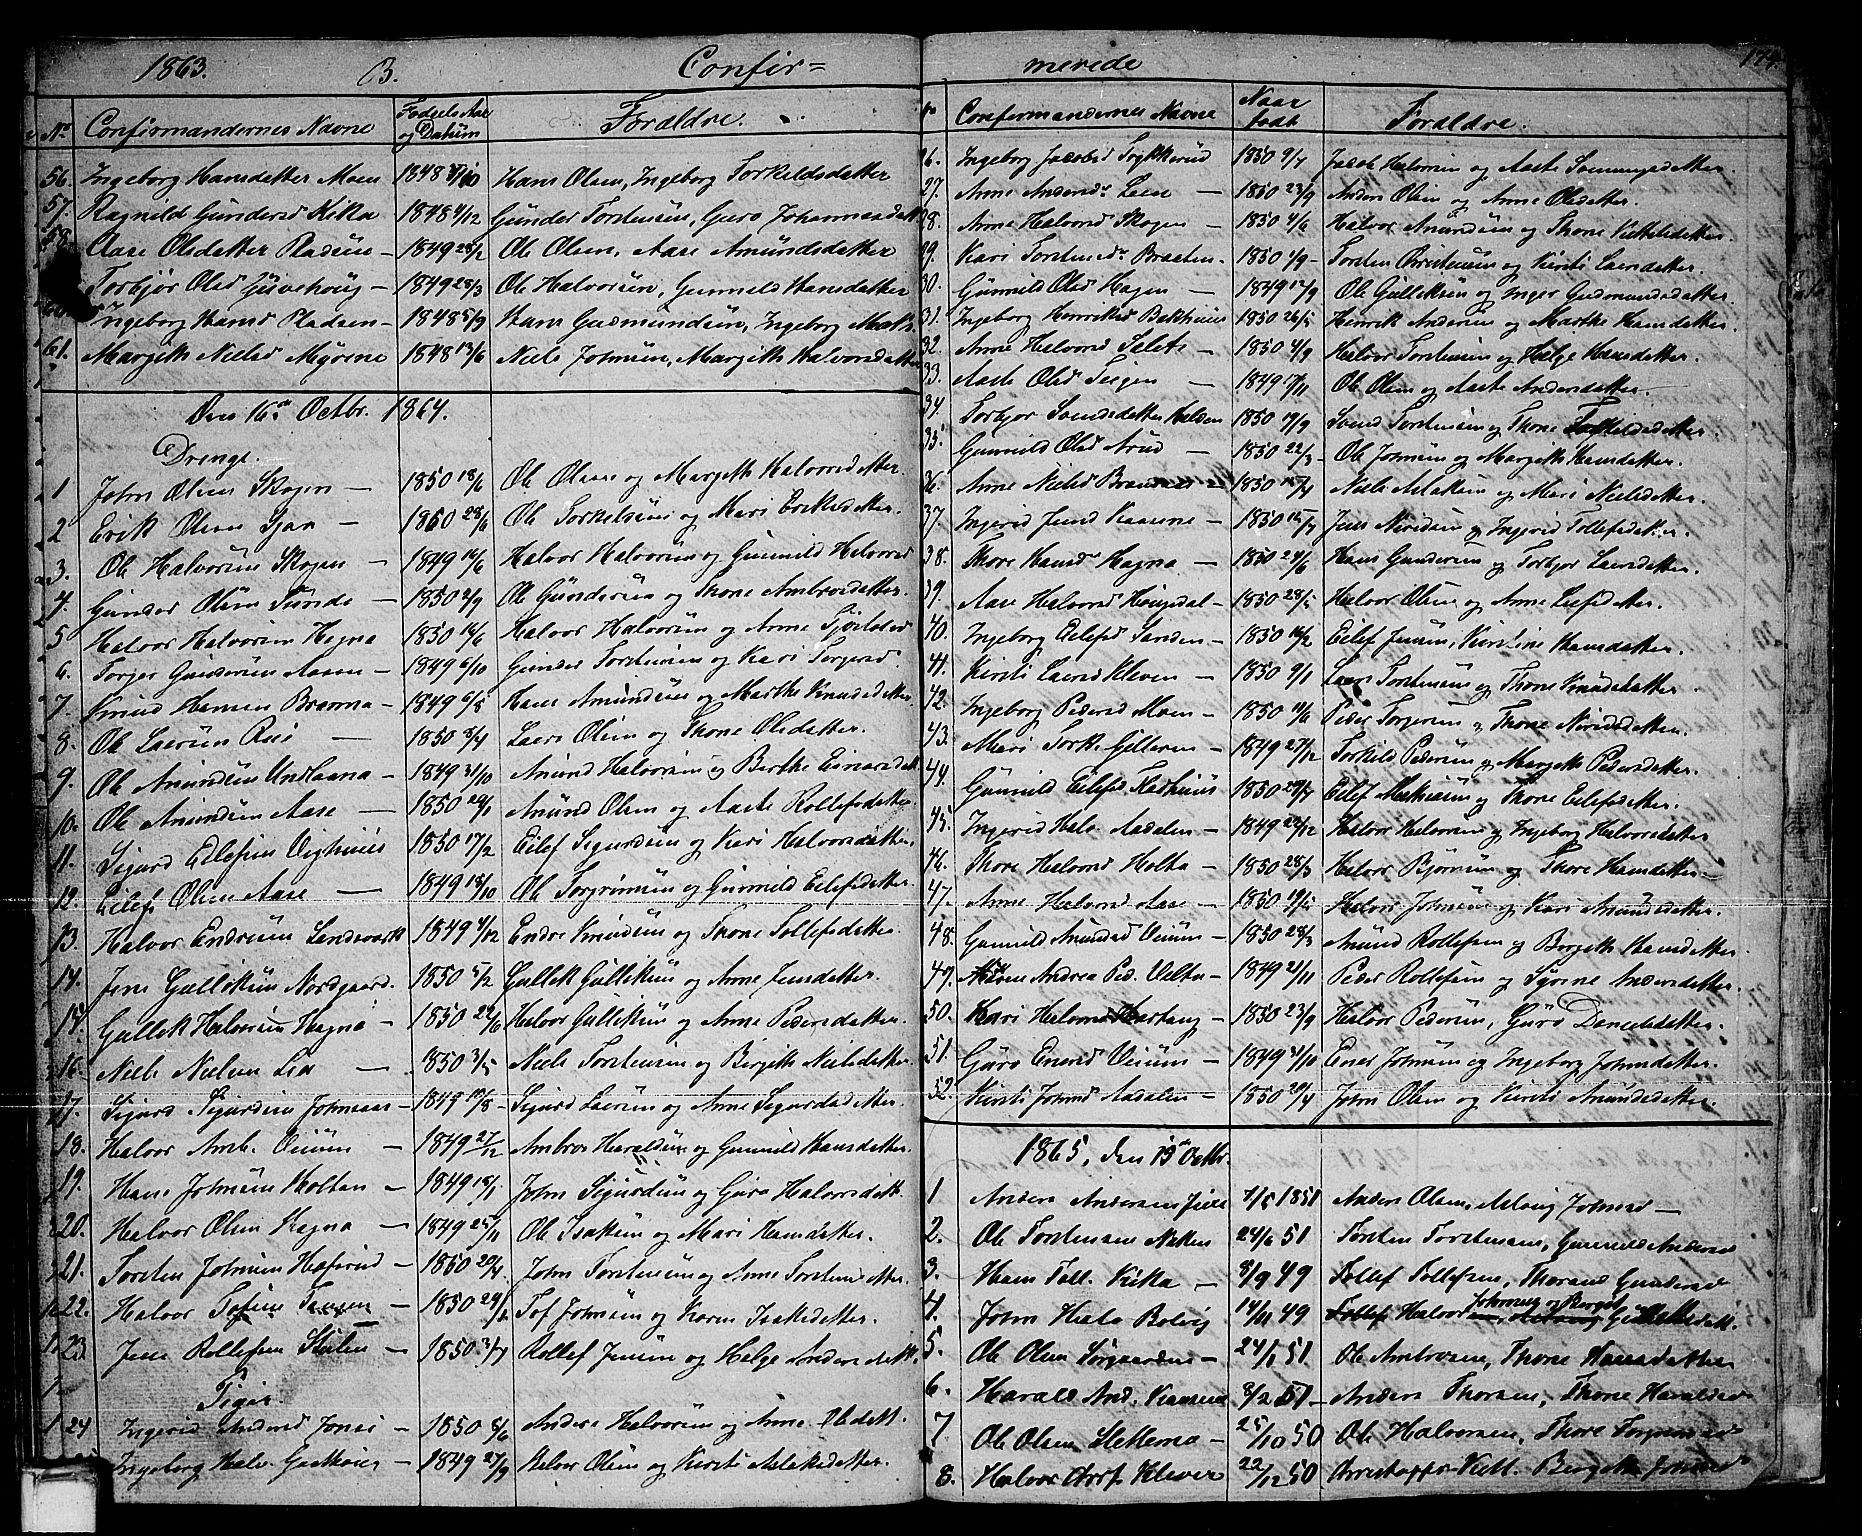 1863. B. Confir=
No Confirmandernes Navne Fødsels Aar og Datum Forældre.
56. Ingeborg Hansdatter Moen 1848 Hans Olsen, Ingeborg Torkeldsdatter
57. Ragnild Gundersd Kika 1848 4/12 Gunder Torstensen, Guro Johannesdatt
58. Aase Olsdatter Pladsen – 1849 28/2 Ole Olsen, Aase Amundsdatter
Torbjør Olsd – 1849 28/3 Ole Halvorsen, Gunnild Hansdatter
60. Ingeborg Hansd Pladsen – 1848 5/9 Hans Gudmundsen, Ingeborg
61. Margith Nielsd Myrene 1848 13/6 Niels Johnsen, Margith Halvorsdatter
Den 16de Octbr. 1864.
Drenge.
1 John Olsen Skogen – 1850 18/6 Ole Olsen og Margith Halvorsdatter.
2 Erik Olsen – 1850 Ole Torkelsen og Mari Eriksdatter.
3. Ole Halvorsen Skogen – 1849 16/6 Halvor Halvorsen og Gunnild Halvorsd
4. Gunder Olsen Sunde – 1850 2/9 Ole Gundersen og Thone Ambrosdatter.
5 Halvor Halvorsen Hagna 1850 16/6 Halvor Halvorsen og Anne
6. Torger Gundersen Aasen – 1849 6/10 Gunder Torstensen og Kari Torgersd.
7. Knud Hansen – 1849 6/8 Hans Amundsen og Marthe Knudsdatter.
8. Ole Larsen – 1850 3/4 Lars Olsen og Thone Olsdatter.
9. Ole Amundsen – 1849 31/10 Amund Halvorsen og Berthe Einarsdatt
10. Ole Amundsen Aase – 1850 20/1 Amund Olsen og Aaste Rollefsdatter.
11. Sigurd Eilefsen 1850 17/2 Eilef Sigurdsen og Kari Halvorsdatter.
12. Eilef Olsen Aase – 1849 18/10 Ole Torgrimsen og Gunnild Eilefsdatter.
13. Halvor Endresen 1849 4/12 Endre Knudsen og Thone Tollefsdatter.
14. Jens Gulliksen Nordgaard. 1850 5/2 Gullik Gulliksen og Anne Jensdatter.
15. Gullik Halvorsen Hagna – 1850 22/6 Halvor Gulliksen og Anne Pedersdatter.
16. Niels Nielsen Lia – 1850 3/5 Niels Torstensen og Birgith Nielsdatter.
17. Sigurd Sigurdsen – 1849 Sigurd Larsen og Anne Sigurdsdatter.
18. Halvor Amb. – 1849 27/12 Ambros Haraldsen og Gunnild Hansdatter.
19. Hans Johnsen Holtan – 1849 18/1 John Sigurdsen og Guro Halvorsdatt.
20. Halvor Olsen Hagna – 1849 25/11 Ole Isaksen og Mari Hansdatter.
21. Torsten Johnsen – 1850 20/4 John Torstensen og Anne Torstensdatter.
22. Halvor Tofsen – 1850 Tof Johnsen og Karen Isaksdatter.
23 Jens Rollefsen – 1850 3/7 Rollef Jensen og Helge Andersdatt.
Piger.
24 Ingerid Andersd – 1850 8/6 Anders Halvorsen og Anne Olsdatt.
Ingeborg Halv. – 1849 27/9 Halvor Olsen og Kirsti Aslaksdatter.
merede 174.
No Confirmandernes Navne Naar født Forældre.
26. Ingeborg Jacobsd 1850 9/7 Jacob Halvorsen og Aaste
27. Anne Andersd – 1850 23/9 Anders Olsen og Anne Olsdatter.
28. Anne Halvorsd Skogen – 1850 4/6 Halvor Amundsen og Thone Kittelsdatter.
29. Kari Torstensd Braaten – 1850 4/9 – Torsten Christensen og Kirsti Larsdatter.
30. Gunnild Olsd Hagen – 1849 17/9 Ole Gulliksen og Inger Gudmundsdatter.
31. Ingeborg Henriksd Bakhuus 1850 26/5 Henrik Andersen og Marthe Hansdatter.
32. Anne Halvorsd – 1850 4/9 Halvor Torstensen og Helge Hansdatter.
33. Aaste Olsd Teigen – 1849 17/11 Ole Olsen og Aaste Andersdatter.
34. Torbjør Svendsdatter 1850 19/9 Svend Torstensen og Thone
35. Gunnild Olsd – 1850 22/3 – Ole Johnsen og Margith Hansdatter.
36. Anne Nielsd – 1850 Niels Aslaksen og Mari Nielsdatter.
37. Ingerid Jensd – 1850 Jens og Ingerid Tollefsdatter.
38. Thore Hansd Hagna – 1850 24/6 Hans Gundersen og Torbjør Larsdatter.
39. Aase Halvorsd – 1850 28/5 Halvor Olsen og Anne
40. Ingeborg Eilefsd Sanden – 1850 16/2 Eilef Jensen, Kirstine Hansdatter.
41. Kirsti Larsd Kleven – 1850 9/1 Lars Torstensen og Thone Knudsdatter.
42. Ingeborg Pedersd Moen – 1850 11/6 Peder Torgersen og Thone
43. Mari Tork. – 1849 27/12 Torkild Pedersen og Margith Pedersdatter.
44. Gunnild Eilefsd 1850 Eilef Mathisen og Thone Eilefsdatter.
45. Ingerid Halv. Aadalen – 1849 22/12 Halvor Halvorsen og Ingeborg Halvorsdatter
46. Thore Halvorsd Holta – 1850 28/3 Halvor Bjørnsen og Thore Hansdatter –
47. Anne Halvorsd Aase – 1850 19/5 Halvor Johnsen og Kari Amundsdatter.
48. Gunnild Amundsd – 1850 28/3 Amund Rollefsen og Birgith Hansdatter.
49. Andrea Ped. – 1849 21/11 Peder Rollefsen og Syrine Andersdatter.
50. Kari Halvorsd – 1850 23/9 Halvor Pedersen, Guro Danielsdatter.
51. Guro Enersd – 1849 31/10 Ener Johnsen og Ingeborg Johnsdatter.
52. Kirsti Johnsd Aadalen – 1850 20/4 John Olsen og Kirsti Amundsdatter.
1865, den 15de Octbr.
1 Anders Andersen 1851 Anders Olsen, Johnsd –
2. Ole Torstensen 24/6 51 Torsten Torstensen, Gunnild Andersd
3. Hans Toll. Kika – 8/9 49 Tollef Tollefsen, Thorand Gundersd
4. John Halv. Bolvig 14/11 49 Halvor Johnsen og
5. Ole Olsen Sørgaarden – 24/1 51 Ole Ambrosen, Thone Hansdatter
6. Harald And. 8/2 51 – Anders Thorsen, Thone Haraldsd
7 Ole Olsen Sletterna – 25/10 50 Ole Halvorsen, Thore
8. Halvor Kleven 22/12 50 Christopher Kitt. Birgith Johnsd